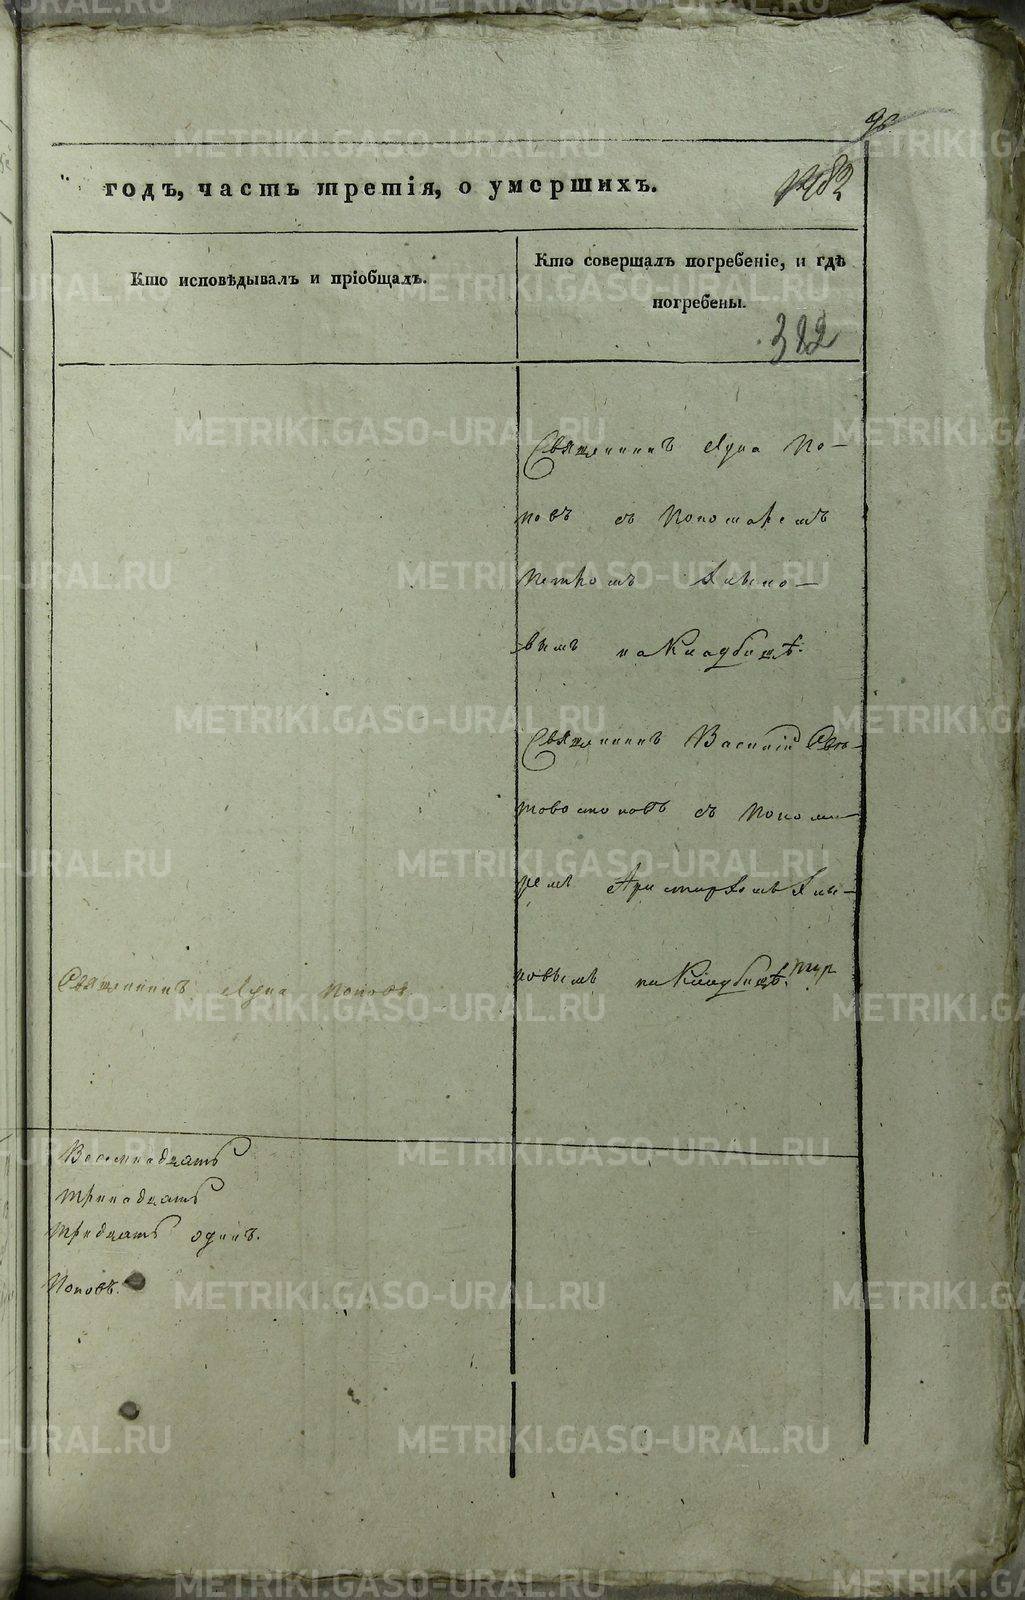 годъ, часть третія, о умершихъ.
Кто исповѣдывалъ и пріобщалъ.
Кто совершалъ погребеніе, и гдѣ
погребены.
Священникъ Іуда По-
повъ съ Пономаремъ
Петромъ
вымъ на Кладбищѣ.
Священникъ Василій
съ Понома-
ремъ Аристархомъ
новымъ на Кладбищѣ.
Священникъ Іуда Поповъ.
Восемнадцать
тринадцать
тридцать одинъ.
Поповъ.
METRIKI.GASO-URAL.RU